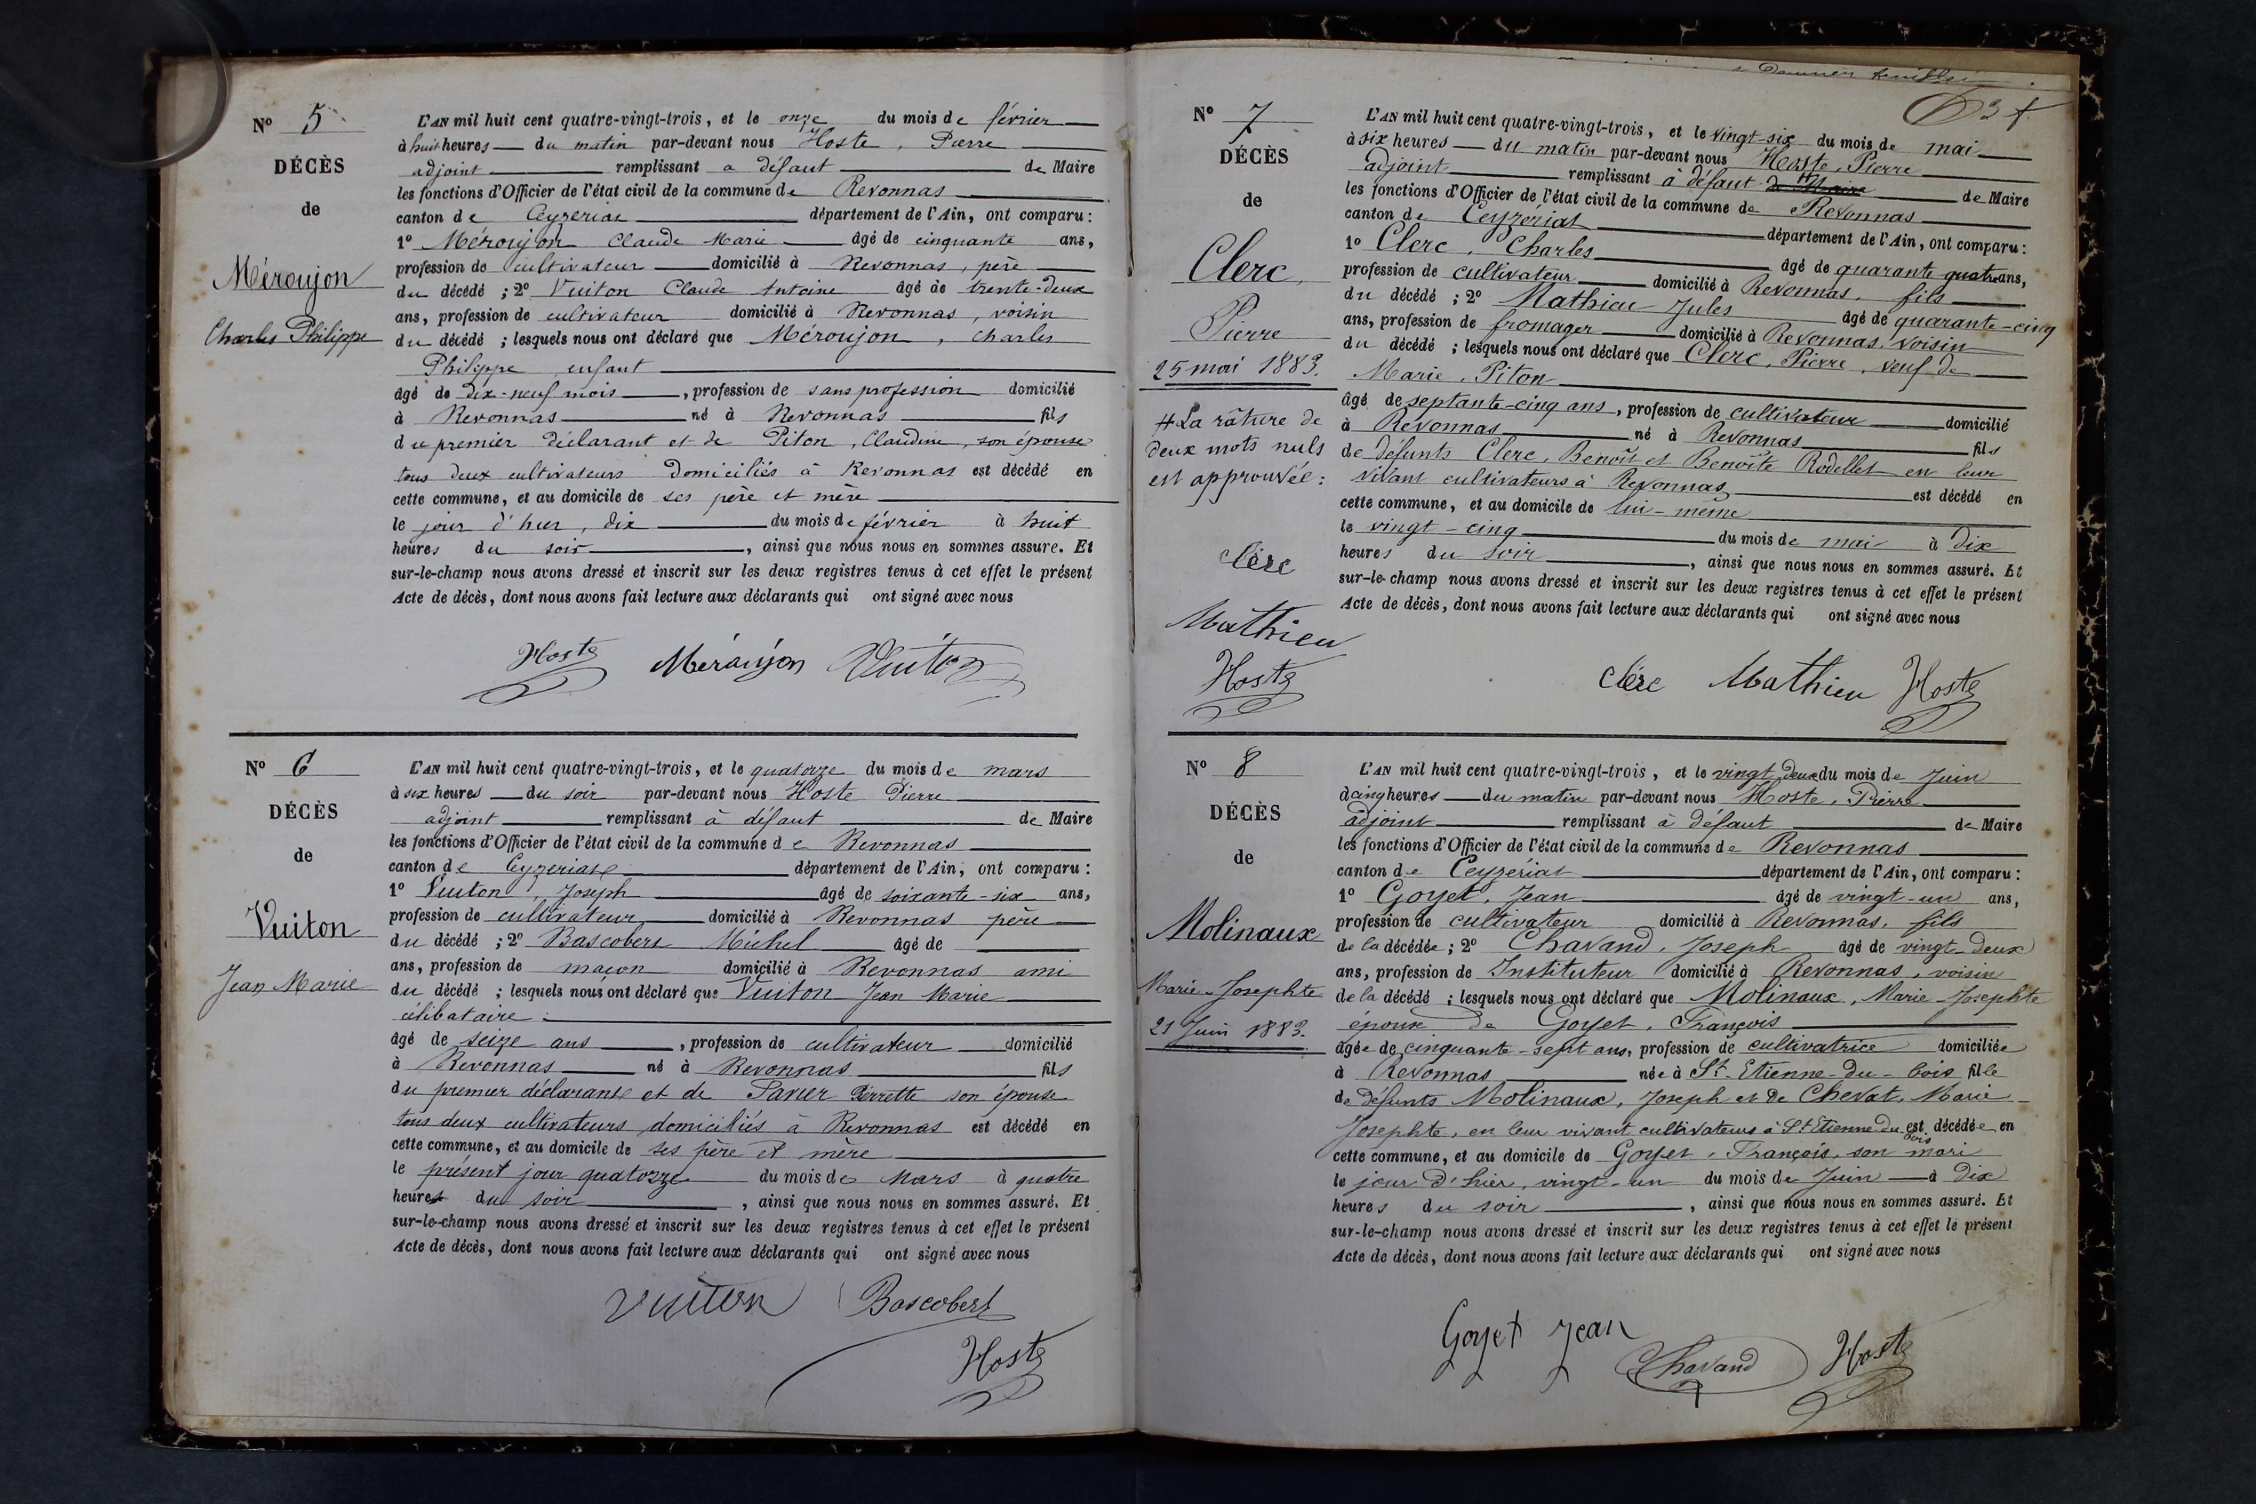 Nº 5
DÉCÈS
de
Méroujon
Charles Philippe
L'AN mil huit cent quatre-vingt-trois, et le onze du mois de février
à huit heures du matin par-devant nous Hoste, Pierre
adjoint remplissant a défaut de Maire
les fonctions d'Officier de l'état civil de la commune de Revonnas
canton de Ceyzeriat département de l'Ain, ont comparu :
1º Méroujon Claude Marie âgé de cinquante ans,
profession de cultivateur domicilié à Revonnas, père
du décédé ; 2º Vuiton Claude Antoine âgé de trente-deux
ans, profession de cultivateur domicilié à Revonnas, voisin
du décédé ; lesquels nous ont déclaré que Méroujon, Charles
Philippe enfant
âgé de dix-neuf mois, profession de sans profession domicilié
à Revonnas né à Revonnas fils
du premier déclarant et de Piton, Claudine, son épouse
tous deux cultivateurs domiciliés à Revonnas est décédé en
cette commune, et au domicile de ses père et mère
le jour d'hier, dix du mois de février à huit
heures du soir, ainsi que nous nous en sommes assuré. Et
sur-le-champ nous avons dressé et inscrit sur les deux registres tenus à cet effet le présent
Acte de décès, dont nous avons fait lecture aux déclarants qui ont signé avec nous
Hoste Méroujon Vuiton
Nº 6
DÉCÈS
de
Vuiton
Jean Marie
L'AN mil huit cent quatre-vingt-trois, et le quatorze du mois de mars
à six heures du soir par-devant nous Hoste Pierre
adjoint remplissant à défaut de Maire
les fonctions d'Officier de l'état civil de la commune de Revonnas
canton de Ceyzeriat département de l'Ain, ont comparu :
1º Vuiton, Joseph âgé de soixante-six ans,
profession de cultivateur domicilié à Revonnas père
du décédé ; 2º Bascobert Michel âgé de
ans, profession de maçon domicilié à Revonnas ami
du décédé ; lesquels nous ont déclaré que Vuiton Jean Marie
célibataire
âgé de seize ans, profession de cultivateur domicilié
à Revonnas né à Revonnas fils
du premier déclarant et de Pierrette son épouse
tous deux cultivateurs domiciliés à Revonnas est décédé en
cette commune, et au domicile de ses père et mère
le présent jour quatorze du mois de Mars à quatre
heures du soir, ainsi que nous nous en sommes assuré. Et
sur-le-champ nous avons dressé et inscrit sur les deux registres tenus à cet effet le présent
Acte de décès, dont nous avons fait lecture aux déclarants qui ont signé avec nous
Vuiton Bascobert
Hoste
Nº 7
DÉCÈS
de
Clerc,
Pierre
25 mai 1883.
# La râture de
deux mots nuls
est approuvée :
Clerc
Mathieu
Hoste
L'AN mil huit cent quatre-vingt-trois, et le vingt-six du mois de mai
à six heures du matin par-devant nous Hoste, Pierre
adjoint remplissant à défaut de Maire # de Maire
les fonctions d'Officier de l'état civil de la commune de Revonnas
canton de Ceyzériat département de l'Ain, ont comparu :
1º Clerc, Charles âgé de quarante quatre ans,
profession de cultivateur domicilié à Revonnas, fils
du décédé ; 2º Mathieu Jules âgé de quarante-cinq
ans, profession de fromager domicilié à Revonnas, voisin
du décédé ; lesquels nous ont déclaré que Clerc, Pierre, veuf de
Marie, Piton
âgé de septante-cinq ans, profession de cultivateur domicilié
à Revonnas né à Revonnas fils
de défunts Clerc, Benoît et Benoîte Rodellet en leur
vivant cultivateurs à Revonnas est décédé en
cette commune, et au domicile de lui-même
le vingt-cinq du mois de mai à dix
heures du soir, ainsi que nous nous en sommes assuré. Et
sur-le-champ nous avons dressé et inscrit sur les deux registres tenus à cet effet le présent
Acte de décès, dont nous avons fait lecture aux déclarants qui ont signé avec nous
Clerc Mathieu Hoste
Nº 8
DÉCÈS
de
Molinaux
Marie-Josephte
21 Juin 1883.
L'AN mil huit cent quatre-vingt-trois, et le vingt deux du mois de Juin
à cinq heures du matin par-devant nous Hoste, Pierre
adjoint remplissant à défaut de Maire
les fonctions d'Officier de l'état civil de la commune de Revonnas
canton de Ceyzériat département de l'Ain, ont comparu :
1º Goyet, Jean âgé de vingt-un ans,
profession de cultivateur domicilié à Revonnas, fils
de la décédée ; 2º Chavand, Joseph âgé de vingt-deux
ans, profession de Instituteur domicilié à Revonnas, voisin
de la décédé ; lesquels nous ont déclaré que Molinaux, Marie-Josephte
épouse de Goyet, François
âgée de cinquante-sept ans, profession de cultivatrice domiciliée
à Revonnas née à St-Etienne-du-bois fille
de défunts Molinaux, Joseph et de Chevat, Marie-
Josephte, en leur vivant cultivateurs à St Etienne du bois est décédée en
cette commune, et au domicile de Goyet, François, son mari
le jour d'hier, vingt-un du mois de Juin à dix
heures du soir, ainsi que nous nous en sommes assuré. Et
sur-le-champ nous avons dressé et inscrit sur les deux registres tenus à cet effet le présent
Acte de décès, dont nous avons fait lecture aux déclarants qui ont signé avec nous
Goyet Jean
Chavand Hoste